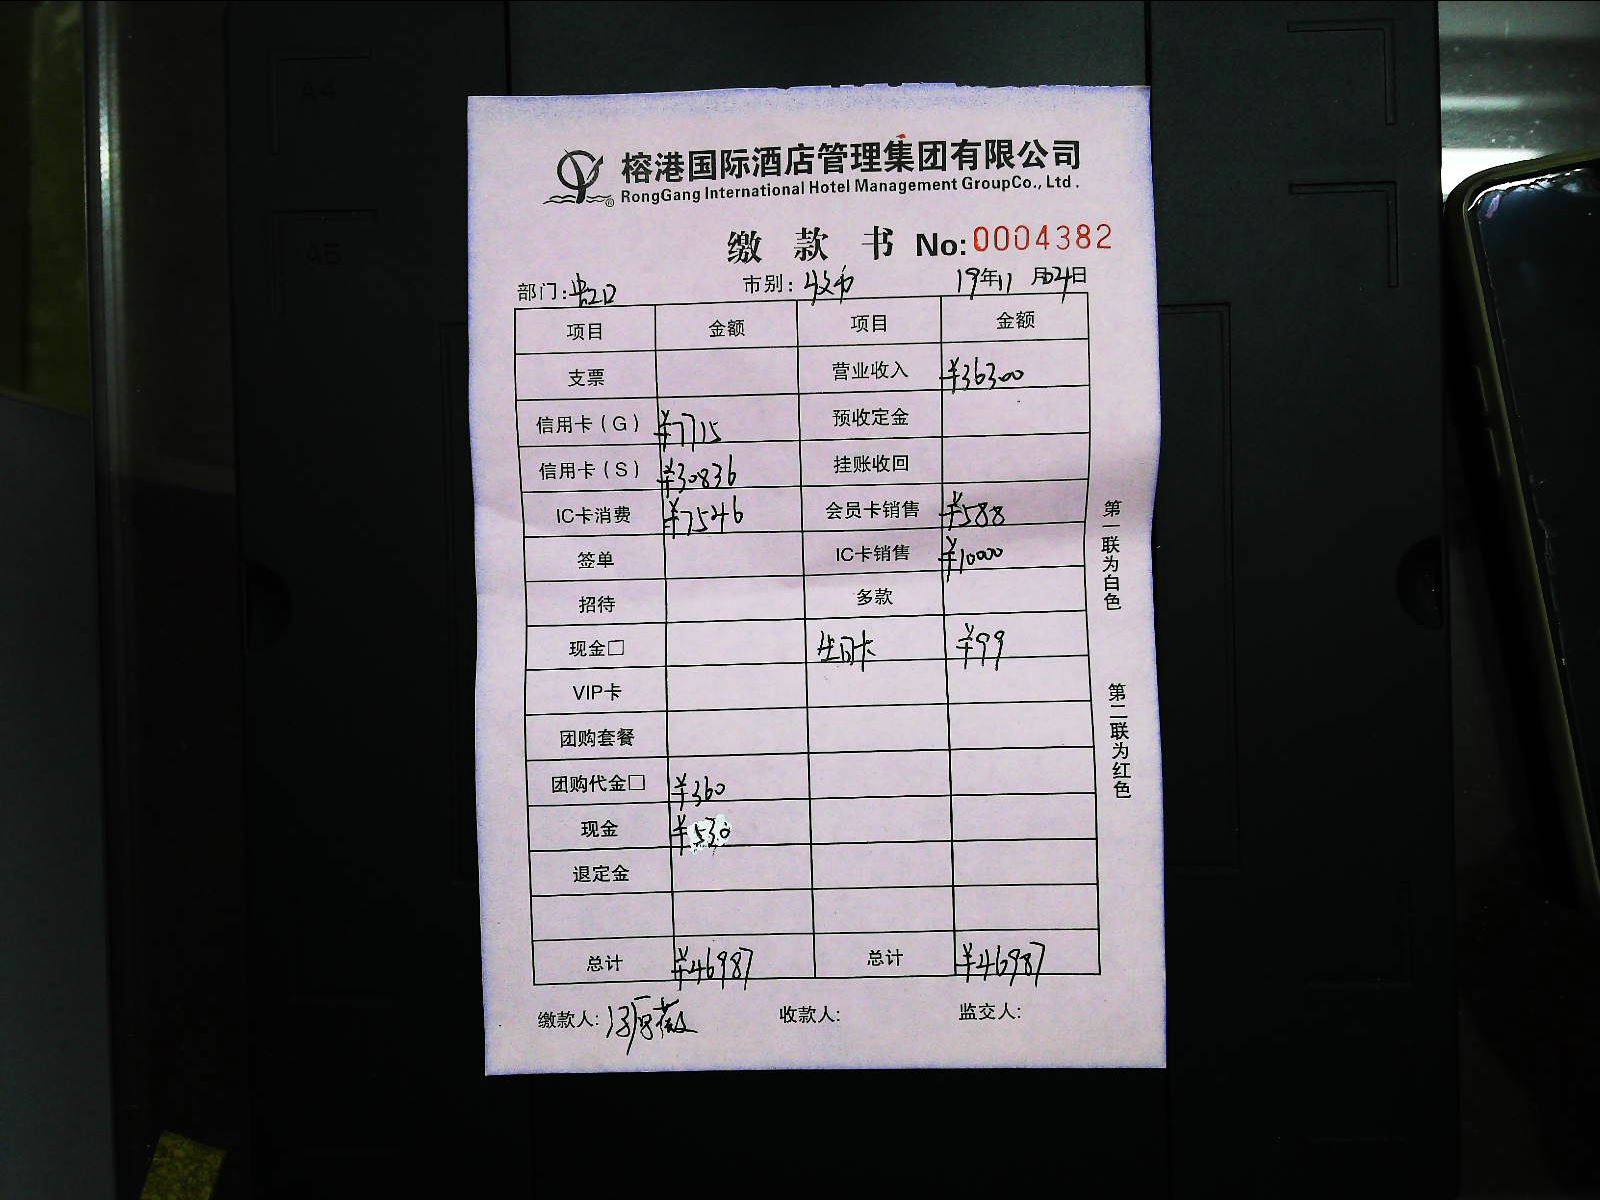 A4
A5
榕港国际酒店管理集团有限公司
RongGang International Hotel Management GroupCo., Ltd.
缴 款 书 No:0004382
部门: 市别: 收市 19年11月04日
项目 金额 项目 金额
支票 营业收入 ¥36300
信用卡(G) ¥7715 预收定金
信用卡(S) ¥30836 挂账收回
IC卡消费 ¥7546 会员卡销售 ¥588
签单 IC卡销售 ¥10000
招待 多款
现金□ 生日卡 ¥99
VIP卡
团购套餐
团购代金□ ¥360
现金 ¥530
退定金
总计 ¥46987 总计 ¥46987
缴款人: 收款人: 监交人:
第一联为白色
第二联为红色